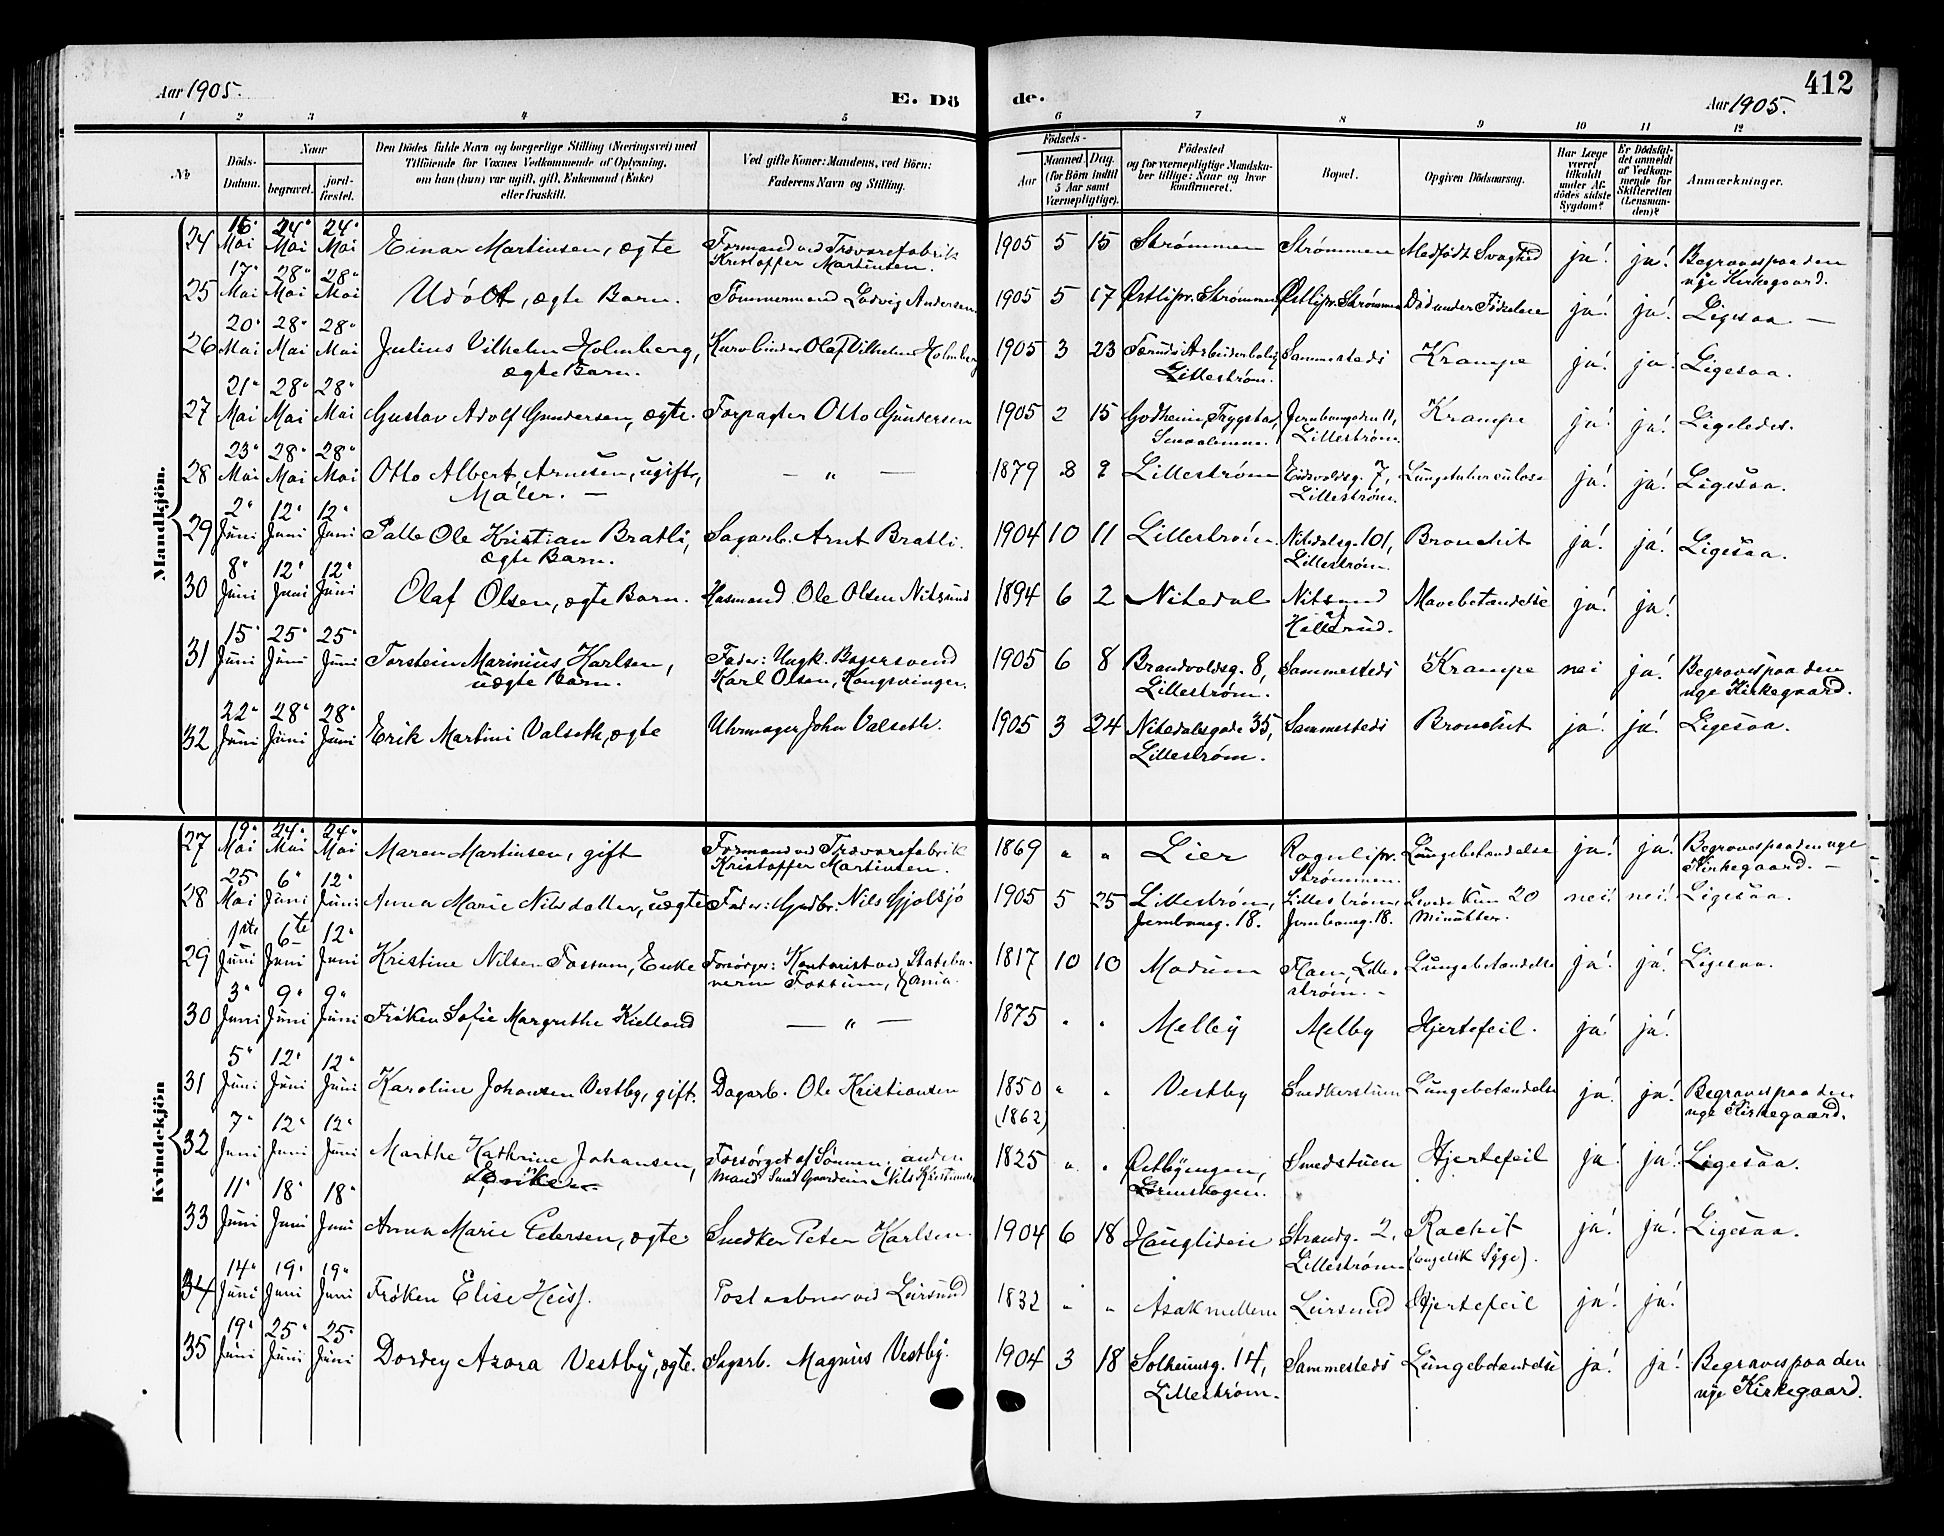 412
Aar 1905.
E. Dö
de.
Aar 1905.
1 2 3 4 5 6 7 8 9 10 11 12
No
Döds-
Datum.
Naar
begravet.
jord-
fæstet.
Den Dödes fulde Navn og borgerlige Stilling (Næringsvei) med
Tilföiende for Voxnes Vedkommende af Oplysning,
om han (hun) var ugift, gift, Enkemand (Enke)
eller fraskilt.
Ved gifte Koner: Mandens, ved Börn:
Faderens Navn og Stilling.
Födsels-
Aar
Maaned. Dag.
(for Börn indtil
5 Aar samt
Værnepligtige).
Födested
og for værnepligtige Mandska-
ber tillige: Naar og hvor
konfirmeret.
Bopæl.
Opgiven Dödsaarsag.
Har Læge
været
tilkaldt
under Af-
dödes sidste
Sygdom?
Er Dödsfal-
det anmeldt
af Vedkom-
mende for
Skifteretten
(Lensman-
den)?
Anmærkninger.
Mandkjön.
24 16' Mai 24' Mai 24' Mai Einar Martinsen, ægte Formand ved Trævarefabrik 1905 5 15 Strømmen Strømmen Medfødt Svaghed ja! ja! Begraves paa den
Kristoffer Martinsen. nye Kirkegaard.
25 17' Mai 28' Mai 28' Mai Udøbt, ægte Barn. Tømmermand Ludvig Andersen 1905 5 17 Østli pr. Strømmen Østli pr. Strømmen Død under Fødselen ja! ja! Ligesaa —
26 20' Mai 28' Mai 28' Mai Julius Vilhelm Holmberg, Kurvbinder Olaf Vilhelm Holmberg 1905 3 23 Arbeiderbolig Sammesteds Krampe ja! ja! Ligesaa.
ægte Barn. Lillestrøm.
27 21' Mai 28' Mai 28' Mai Gustav Adolf Gundersen, ægte. Forpagter Otto Gundersen 1905 2 15 Godheim, Trygstad, Jernbanegaden 11, Krampe ja! ja! Ligeledes.
Smaalenene. Lillestrøm.
28 23' Mai 28' Mai 28' Mai Otto Albert Arnesen, ugift, — " — 1879 8 9 Lillestrøm Eidsvoldsg. 7, Lungetuberculose ja! ja! Ligesaa.
Maler. — Lillestrøm.
29 2' Juni 12' Juni 12' Juni Palle Ole Kristian Bratli, Sagarb. Arnt Bratli. 1904 10 11 Lillestrøm Nitedalsg. 101, Bronchit ja! ja! Ligesaa.
ægte Barn. Lillestrøm.
30 8' Juni 12' Juni 12' Juni Olaf Olsen, ægte Barn. Husmand Ole Olsen Nitsund 1894 6 2 Nitedal Nitsund Mavebetændelse ja! ja!
31 15' Juni 25' Juni 25' Juni Torstein Marinius Karlsen, Fader: Ungk. Bagersvend 1905 6 8 Brandvoldsg. 8, Sammesteds Krampe nei ja! Begraves paa den
uægte Barn. Karl Olsen, Kongsvinger. Lillestrøm. nye Kirkegaard.
32 22' Juni 28' Juni 28' Juni Erik Martini Valseth, ægte Uhrmager John Valseth. 1905 3 24 Nitedalsgade 35, Sammesteds Bronchit ja! ja! Ligesaa.
Lillestrøm.
Kvindekjön
27 19' Mai 24' Mai 24' Mai Maren Martinsen, gift Formand ved Trævarefabrik 1869 " " Lier pr. Lungebetændelse ja! ja! Begraves paa den nye
Kristoffer Martinsen. Strømmen. Kirkegaard. —
28 25 Mai 6' Juni 12' Juni Anna Marie Nilsdatter, uægte Fader: Gmbr. Nils Gjølsjø 1905 5 25 Lillestrøm, Lillestrøm, Levede kun 20 nei! nei! Ligesaa.
Jernbaneg. 18. Jernbaneg. 18. Minutter.
29 1ste Juni 6te Juni 12' Juni Kristine Nilsen Fossum, Enke Forsørger: Kontorist ved Statsba- 1817 10 10 Modum Lille- Lungebetændelse ja! ja! Ligesaa.
nerne Fossum, Krania. strøm. -
30 3' Juni 9' Juni 9' Juni Frøken Sofie Margrethe Kielland — " — 1875 " " Melby Melby Hjertefeil. ja! ja!
31 5' Juni 12' Juni 12' Juni Karoline Johansen Vestby, gift. Dagarb. Ole Kristiansen 1850 " " Vestby Snekkerstuen Lungebetændelse ja! ja! Begraves paa den
(1862) nye Kirkegaard.
32 7' Juni 12' Juni 12' Juni Marthe Kathrine Johansen, Forsørget af Sønnen; anden 1825 " " Smedstuen Hjertefeil ja! ja! Ligesaa.
Enke Mand Smed Lørenskogen.
33 11' Juni 18' Juni 18' Juni Anna Marie Petersen, ægte Snedker Peter Karlsen 1904 6 18 Haugliden Strandg. 2, Rachit ja! ja! Ligesaa.
Lillestrøm (engelsk Syge).
34 14' Juni 19' Juni 19' Juni Frøken Elise Heiss. Postaabner ved Leirsund 1832 " " Asak mellem Leirsund Hjertefeil ja! ja!
35 19' Juni 25' Juni 25' Juni Dordey Azora Vestby, ægte. Sagarb. Magnus Vestby. 1904 3 18 Solheimsg. 14, Sammesteds Lungebetændelse ja! ja! Begraves paa den
Lillestrøm. nye Kirkegaard.